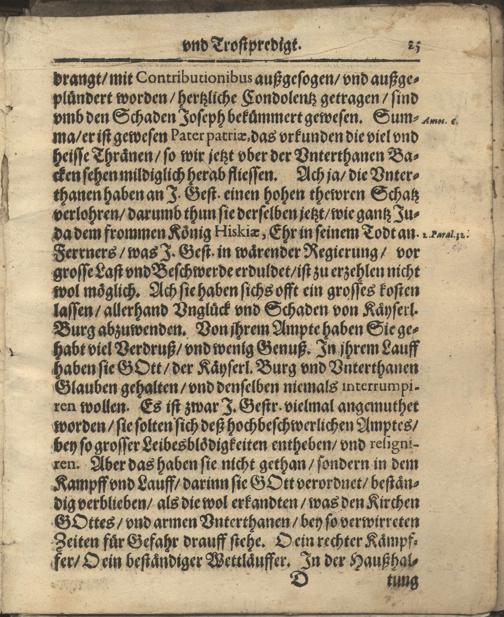 vnd Trostpredigt. 25
drangt/ mit Contributionibus außgesogen/ vnd außge-
plündert worden/ hertzliche Condolentz getragen/ sind
vmb den Schaden Joseph bekümmert gewesen. Sum-
ma/ er ist gewesen Pater patriæ, das vrkunden die viel vnd
Amos. 6.
heisse Thränen/ so wir jetzt vber der Vnterthanen Ba-
cken sehen mildiglich herab fliessen. Ach ja/ die Vnter-
thanen haben an J. Gest. einen hohen thewren Schatz
verlohren/ darumb thun sie derselben jetzt/ wie gantz Ju-
da dem frommen König Hiskiæ, Ehr in seinem Todt an.
2. Paral. 32.
Ferrners/ was J. Gest. in wärender Regierung/ vor
grosse Last vnd Beschwerde erduldet/ ist zu erzehlen nicht
wol möglich. Ach sie haben sichs offt ein grosses kosten
lassen/ allerhand Vnglück vnd Schaden von Käyserl.
Burg abzuwenden. Von jhrem Ampte haben Sie ge-
habt viel Verdruß/ vnd wenig Genuß. In jhrem Lauff
haben sie GOtt/ der Käyserl. Burg vnd Vnterthanen
Glauben gehalten/ vnd denselben niemals interrumpi-
ren wollen. Es ist zwar J. Gestr. vielmal angemuthet
worden/ sie solten sich deß hochbeschwerlichen Amptes/
bey so grosser Leibesblödigkeiten entheben/ vnd resigni-
ren. Aber das haben sie nicht gethan/ sondern in dem
Kampff vnd Lauff/ darinn sie GOtt verordnet/ bestän-
dig verblieben/ als die wol erkandten/ was den Kirchen
GOttes/ vnd armen Vnterthanen/ bey so verwirreten
Zeiten für Gefahr drauff stehe. O ein rechter Kämpf-
fer/ O ein beständiger Wettläuffer. In der Haußhal-
D tung